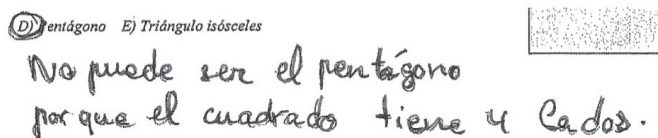 D) Pentágono E) Triángulo isósceles
No puede ser el pentágono
por que el cuadrado tiene 4 Lados.